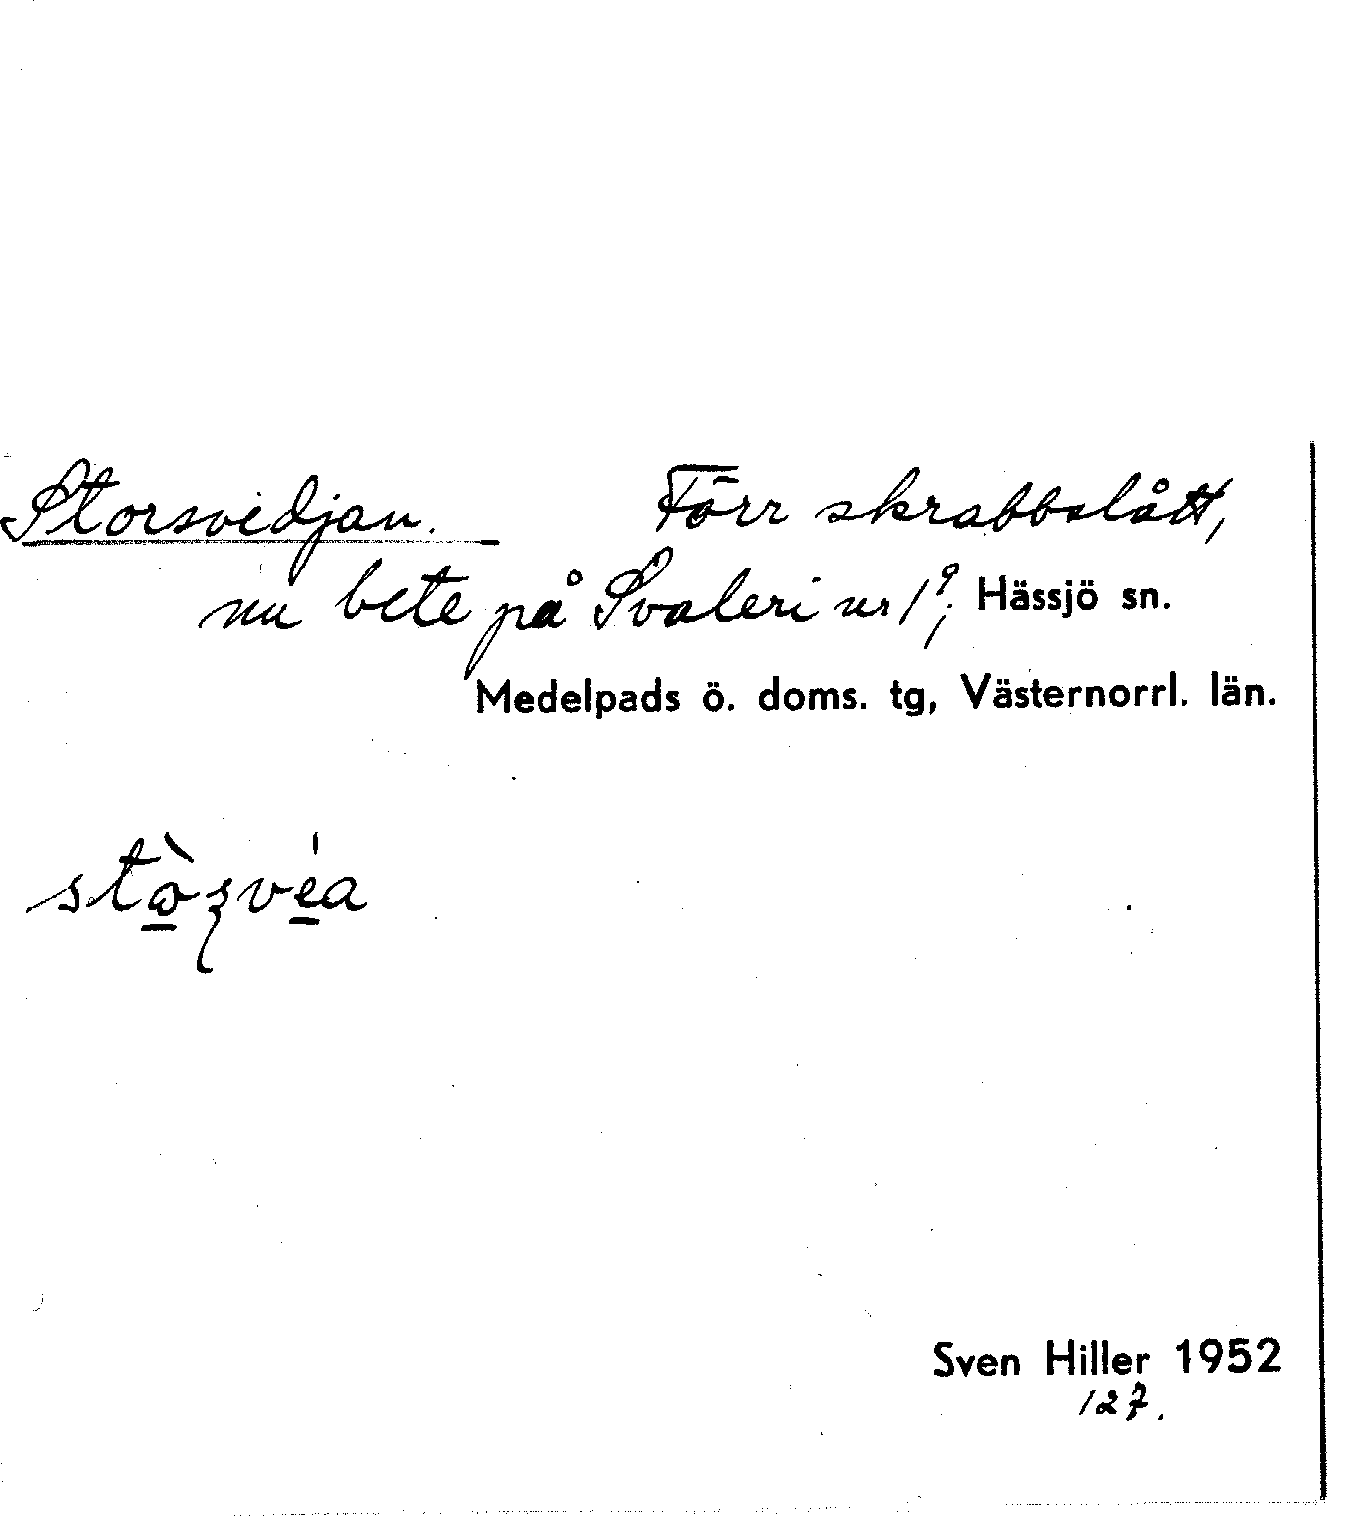 Storsvedjan. Förr skrabbslått,
nu bete på Svaleri nr 1⁹, Hässjö sn.
Medelpads ö. doms. tg, Västernorrl. län.
Sven Hiller 1952
127.